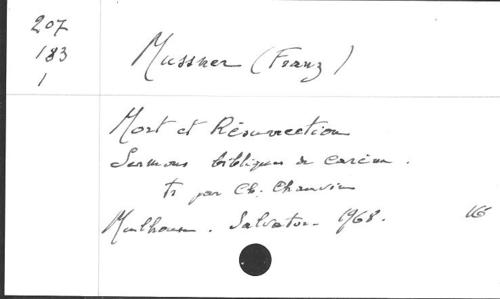 207
183
1
Mussner (Franz)
Mort et Résurrection
Sermons bibliques de carême.
tr par Ch. Chauvin
Mulhouse. Salvator. 1968. 116